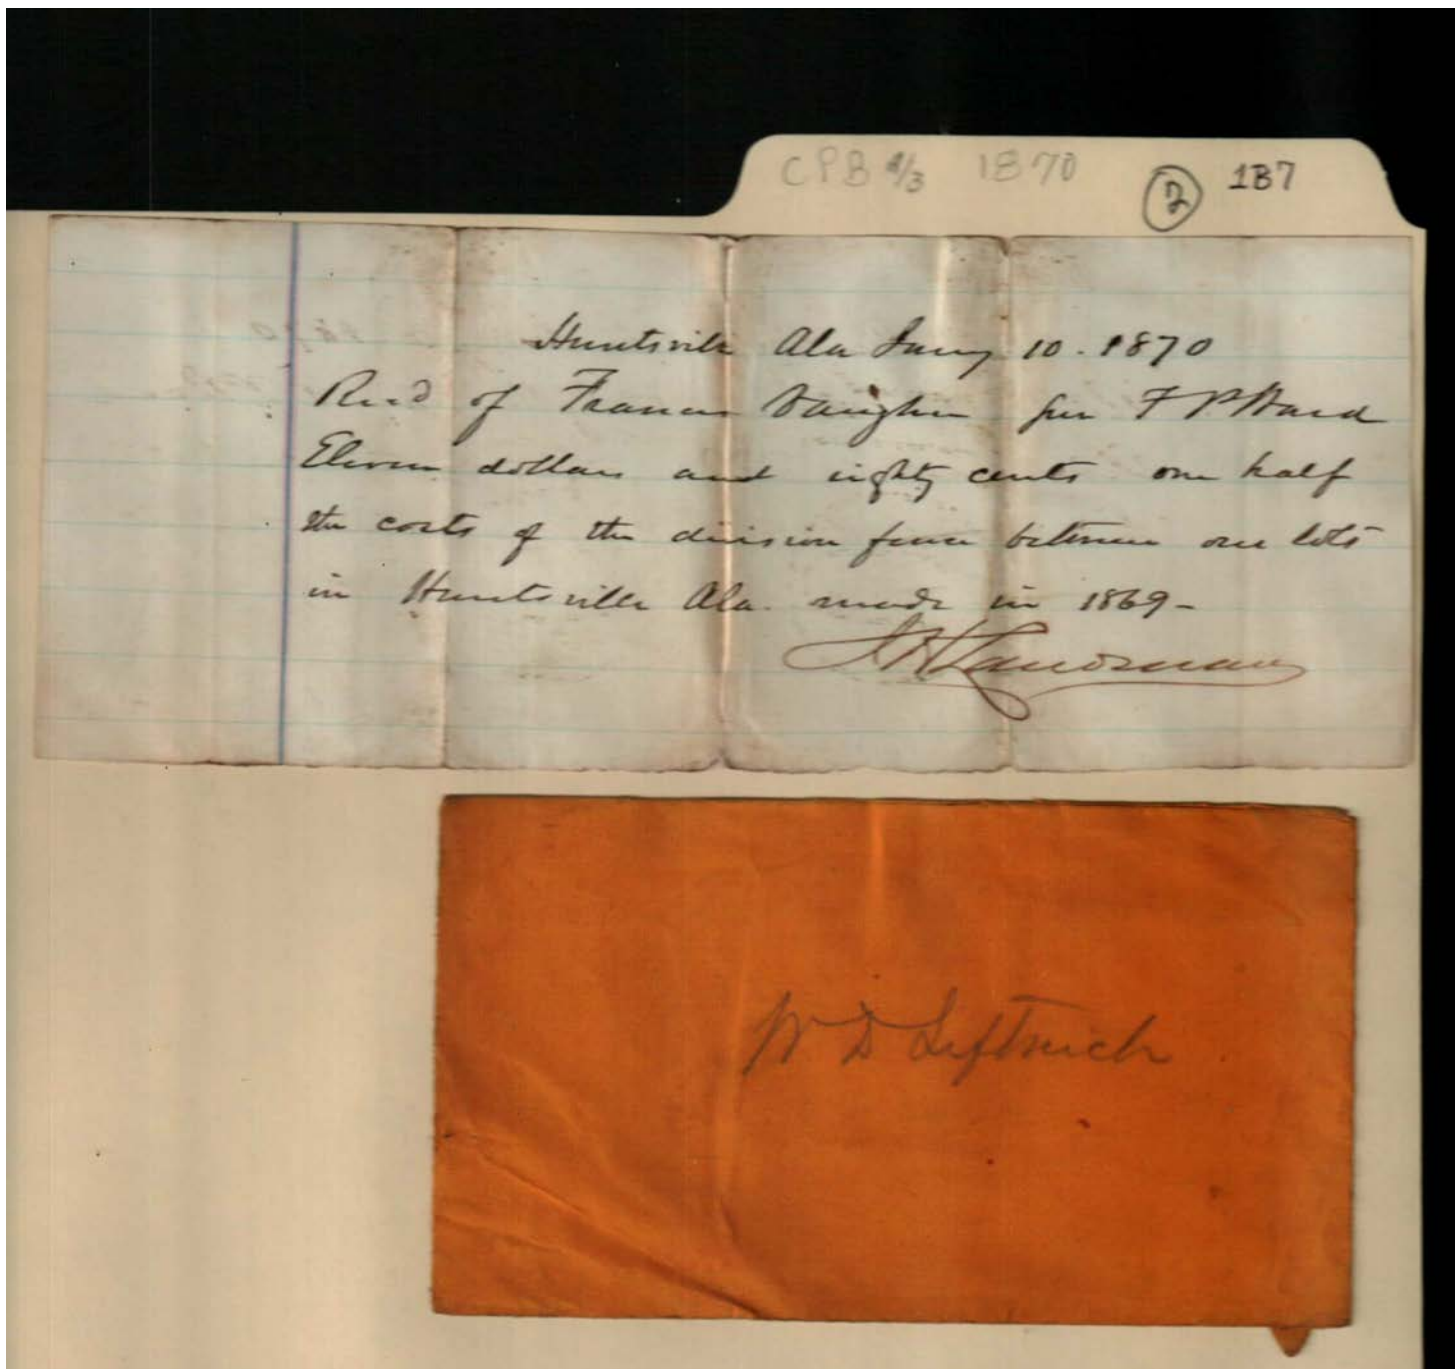 CPB 2/3 1870 2 1B7
Huntsville Ala Jany 10. 1870
Recd of Francis Vaughn for F P Ward
Eleven dollars and eighty cents one half
the costs of the division fence between our lots
in Huntsville Ala. made in 1869-
Landman
W D Leftwich